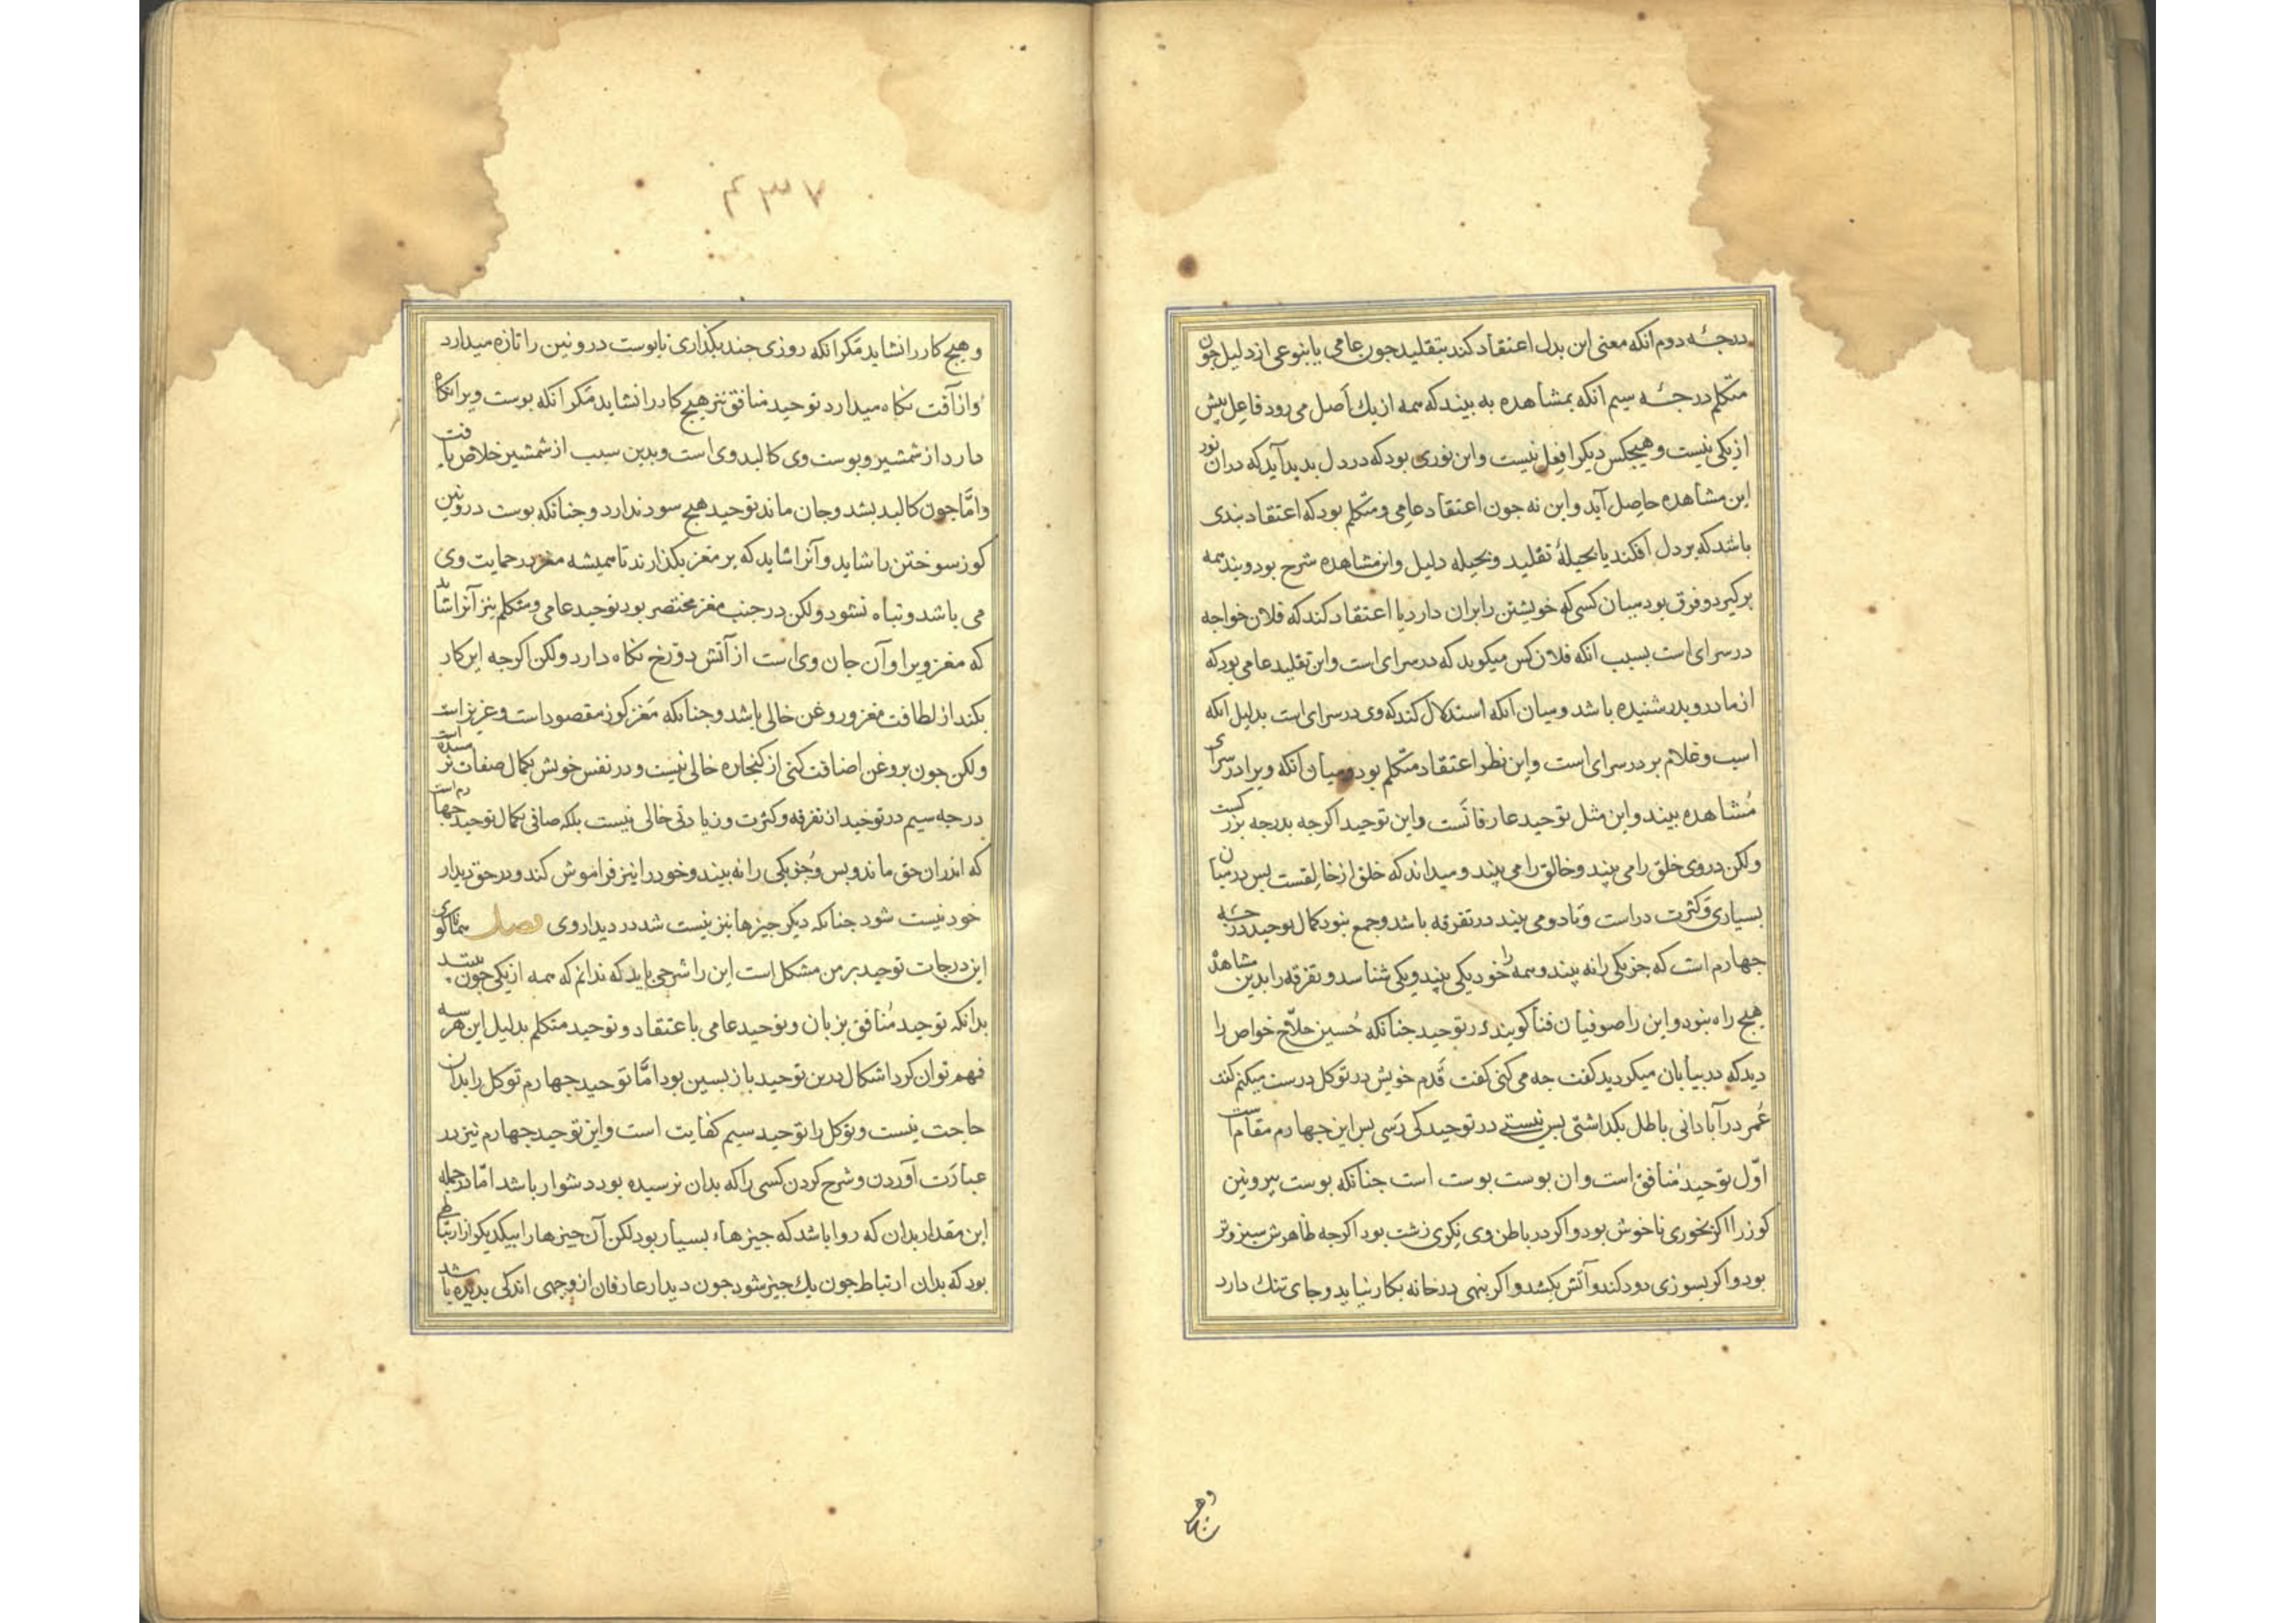 درجـه دوم انکه معنی این بدل اعتقاد کند بتقلید جون عامی یا بنوعی از دلیل جون
متکلم درجـه سیم انکه بمشاهده به بیند که همه از یك اصل می رود و فاعل بیش
از یکی نیست و هیجکس دیکر را فعل نیست و این نوری بود که در دل بدید آید که دران نور
این مشاهده حاصل آید و این نه جون اعتقاد عامی و متکلم بود که اعتقاد بندی
باشد که بر دل افکند یا بحیلهٔ تقلید و بحیله دلیل و این مشاهده شرح بود و بند همه
برکیرد و فرق بود میان کسی که خویشتن را بران دارد یا اعتقاد کند که فلان خواجه
در سرای است بسبب انکه فلان کس میکوید که در سرای است و این تقلید عامی بود که
از مادر و بدر شنیده باشد و میان انکه استدلال کند که وی در سرای است بدلیل انکه
اسب و غلام بر در سرای است و این نظر اعتقاد متکلم بود و میان انکه ویرا در سرای
مُشاهده بیند و این مثل توحید عارفانَست و این توحید اکرجه بدرجه بزرکیست
ولکن در وی خلق را می بیند و خالق را می بیند و میداند که خلق از خالِقست بس در میان
بسیاری و کثرت دراست و تا دو می بیند در تفرقه باشد و جمع نبود کمال توحید درجـه
جهارم است که جز یکی را نه بیند و همه را خود یکی بیند و یکی شناسد و تفرقه را بدین مشاهده
هیج راه نبود و این را صوفیان فنا کویند در توحید جنانکه حُسین حلاّج خواص را
دید که در بیابان میکردید کفت جه می کنی کفت قَدم خویش در توکل درست میکنم کفت
عُمر در آبادانی باطل بکداشتی بس نیستی در توحید کی رَسی بس این جهارم مقام است
اوّل توحید مُنافق است و ان بوست بوست است جنانکه بوست بیرونین
کوز را اکر بخوری ناخوش بود و اکر در باطن وی نِکری زشت بود اکرجه ظاهرش سبز و تر
بود و اکر بسوزی دود کند و آتش بکشد و اکر بنهی در خانه بکار نیاید و جای تنك دارد
و هیج
۴۳۷
و هیج کار را نشاید مکر انکه روزی جند بکذاری تا بوست درونین را تازه میدارد
و از آفت نکاه میدارد توحید منافق نیز هیج کار را نشاید مَکر آنکه بوست ویرا نکاه
دارد از شمشیر و بوست وی کالبد وی است و بدین سبب از شمشیر خلاص یافت
و امّا جون کالبد بشد و جان ماند توحید هیج سود ندارد و جنانکه بوست درونین
کوز سوختن را شاید و آنرا شاید که بر مغز بکذارند تا همیشه مغز در حمایت وی
می باشد و تباه نشود ولکن در جنب مغز مختصر بود توحید عامی و متکلم نیز آنرا شاید
که مغز ویرا و آن جان وی است از آتش دوزخ نکاه دارد ولکن اکرجه این کار
بکند از لطافت مغز و روغن خالی باشد و جنانکه مَغز کوز مقصود است و عزیز است
ولکن جون بروغن اضافت کنی از کنجاره خالی نیست و در نفس خویش بکمال صفا نرسیده است
درجه سیم در توحید از تفرقه و کثرت و زیادتی خالی نیست بلکه صافی بکمال توحید جهارم است
که اندران حق ماند و بس و جُز یکی را نه بیند و خود را نیز فراموش کند و در حق دیدار
خود نیست شود جنانکه دیکر جیزها نیز نیست شد در دیدار وی فصل همانا کوئی
این درجات توحید بر من مشکل است این را شرحی باید که ندانم که همه از یکی جون بیند
بدانکه توحید مُنافق بزبان و توحید عامی باعتقاد و توحید متکلم بدلیل این هر سه
فهم توان کرد اشکال درین توحید بازبسین بود امّا توحید جهارم توکل را بدان
حاجت نیست و توکل را توحید سیم کفایت است و این توحید جهارم نیز در
عبارَت آوردن و شرح کردن کسی را که بدان نرسیده بود دشوار باشد امّا در جمله
این مقدار بدان که روا باشد که جیزهاء بسیار بود لکن آن جیزها را بیکدیکر از ارتباطی
بود که بدان ارتباط جون یك جیز شود جون دیدار عارفان از وجهی اندکی بدیده باشد